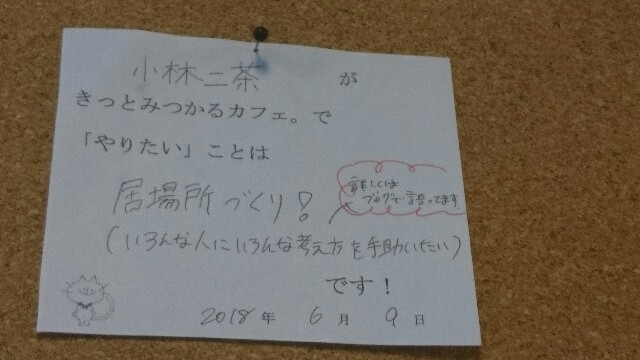 小林二茶 が
きっとみつかるカフェ。で
「やりたい」ことは
居場所づくり!
詳しくは
ブログで語ってます
(いろんな人にいろんな考え方を手助いたい)
です!
2018年 6月 9日